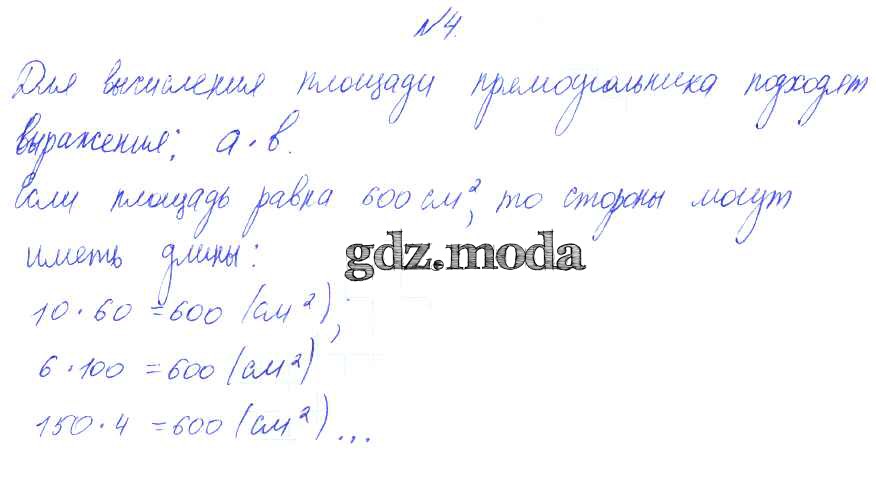 №4.
Для вычисления площади прямоугольника подходят
выражения: a · в.
Если площадь равна 600 см², то стороны могут
иметь длины:
gdz.moda
10 · 60 = 600 (см²);
6 · 100 = 600 (см²)
150 · 4 = 600 (см²)...